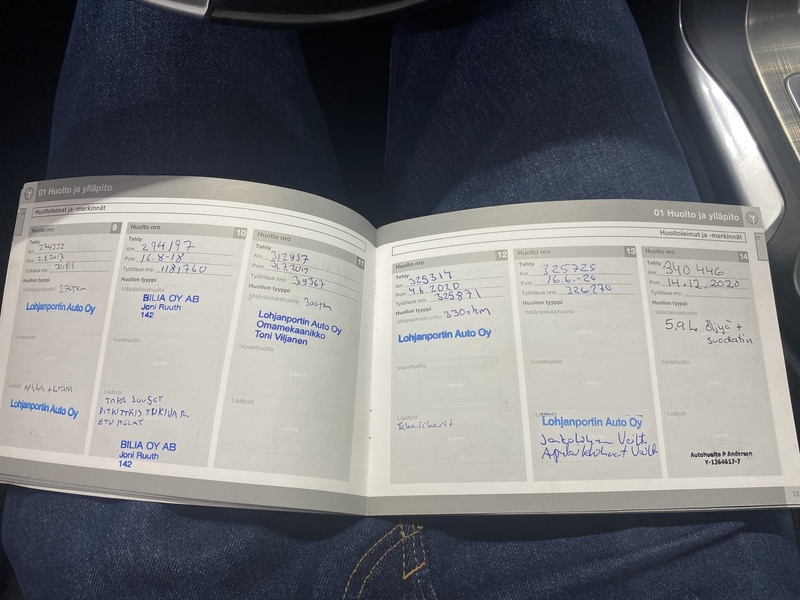 01 Huolto ja ylläpito
Huoltoleimat ja -merkinnät
Huolto nro 9
Tehty
Km 274332
Pvm 2.8.2017
Työtilaus nro:
Huollon tyyppi
Määräaikaishuolto 270tkm
Lohjanportin Auto Oy
Vuosihuolto
Leima
Lisätyöt
Lohjanportin Auto Oy
Huolto nro 10
Tehty
Km 294197
Pvm 16.8-18
Työtilaus nro: 1181760
Huollon tyyppi
BILIA OY AB
Joni Ruuth
142
Vuosihuolto
Leima
Lisätyöt
TAKA JOUSET
ETU
BILIA OY AB
Joni Ruuth
142
Huolto nro 11
Tehty
Km 312957
Pvm .7.2019
Työtilaus nro: 39367
Huollon tyyppi
Määräaikaishuolto 300tkm
Lohjanportin Auto Oy
Omamekaanikko
Toni Viljanen
Vuosihuolto
Leima
Lisätyöt
Leima
01 Huolto ja ylläpito
Huoltoleimat ja -merkinnät
Huolto nro 12
Tehty
Km 325314
Pvm 4.6.2020
Työtilaus nro: 325871
Huollon tyyppi
Määräaikaishuolto 330tkm
Lohjanportin Auto Oy
Vuosihuolto
Leima
Lisätyöt
Leima
Huolto nro 13
Tehty
Km 325725
Pvm 16.6.-20
Työtilaus nro: 326270
Huollon tyyppi
Määräaikaishuolto
Leima
Vuosihuolto
Leima
Lisätyöt
Lohjanportin Auto Oy
Jakohihnan Vaiht
Apulaitehihnat Vaiht
Huolto nro 14
Tehty
Km 340 446
Pvm 14.12.2020
Työtilaus nro:
Huollon tyyppi
Määräaikaishuolto
5,9 L öljyä +
suodatin
Vuosihuolto
Leima
Lisätyöt
Autohuolto P Andersen
Y-1364617-7
13